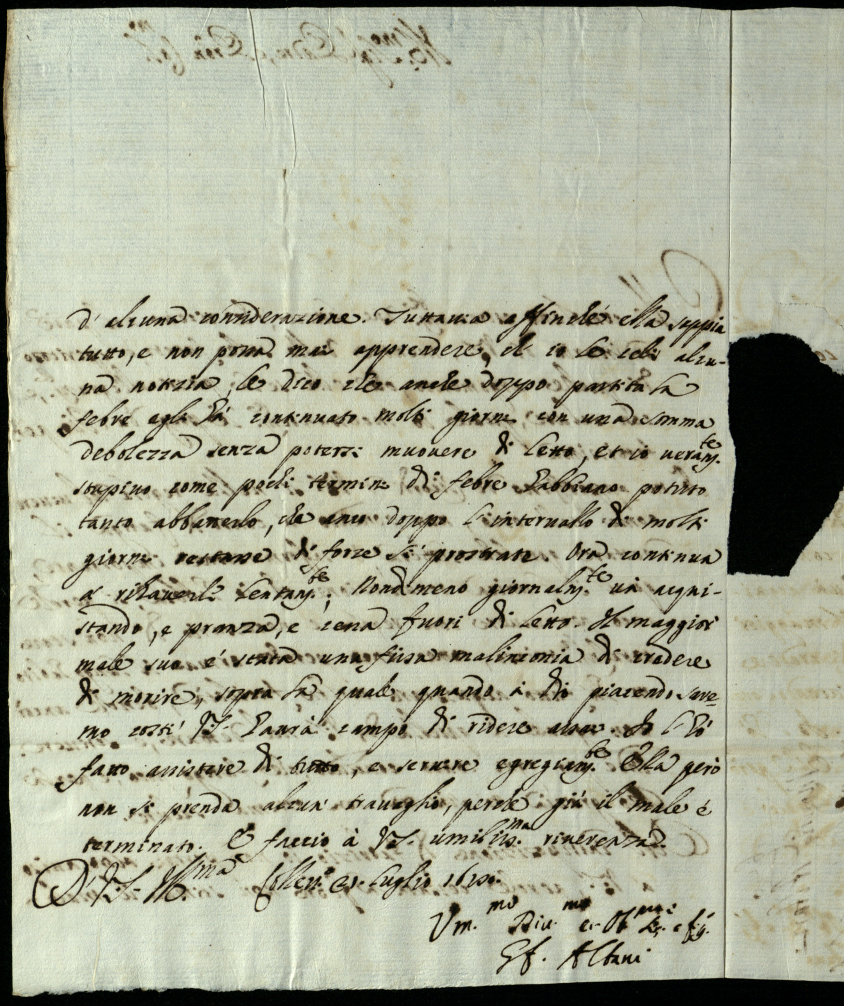 d'alcuna considerazione. Tuttavia affinché ella sappia
tutto, e non possa mai apprendere, ch'io le celi alcu-
na notizia, le dico che anche doppo partita la
febre egli hà continuato molti giorni con una somma
debolezza senza potersi muovere di letto, et io veram.te
stupivo come pochi termini di febre habbiano potuto
tanto abbatterlo, che anco doppo l'intervallo di molti
giorni restasse di forze sì prostrate. Ora continua
a rihaversi lentam.te; Nondimeno giornalm.te và acqui-
stando, e pranza, e cena fuori di letto. Il maggior
male suo é stata una fissa malinconia di credere
di morire, sopra la quale quando à Dio piacendo sare-
mo costì V.S. haurà campo di ridere assai. Io l'hò
fatto assistere di tutto, e servire egregiam.te Ella però
non si prenda alcun travaglio, perche già il male é
terminato. E faccio à V.S. umiliss.ma riverenza.
D. V.S. Ill.ma 21. Luglio
Um.mo Div.mo et Ob.mo
Albani